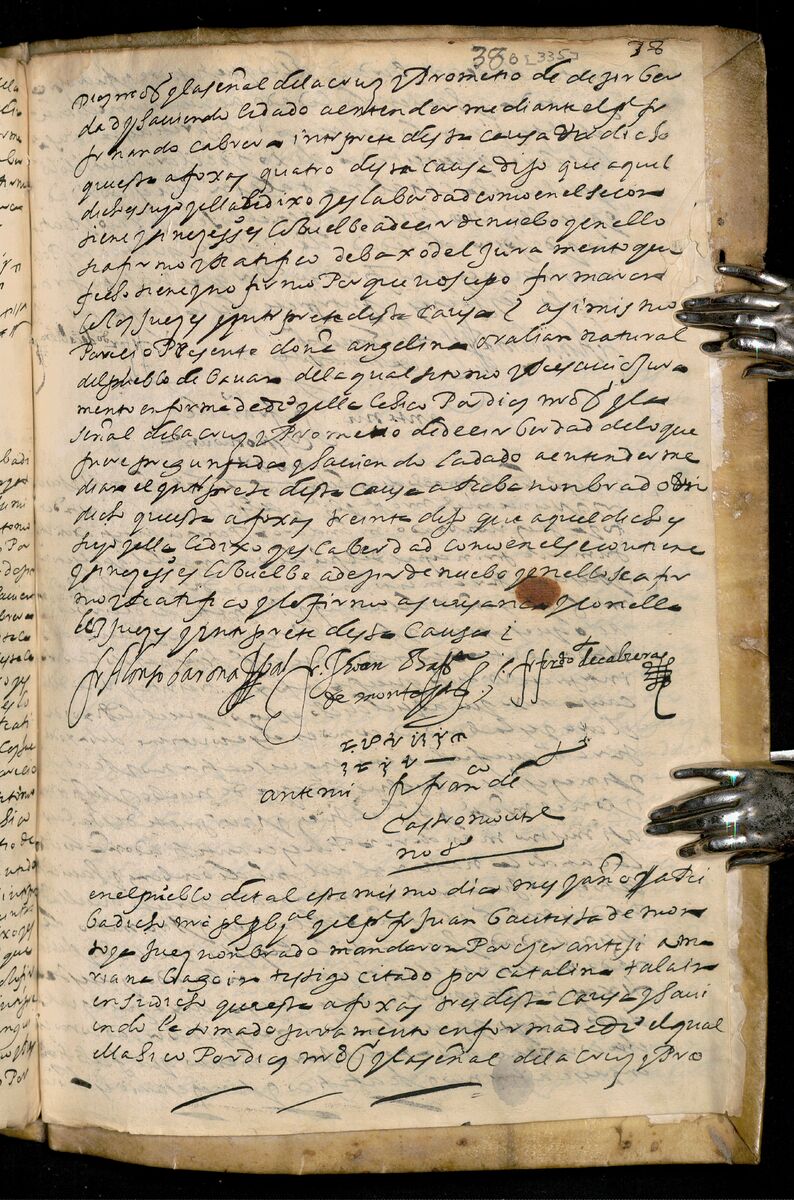 38 8 [335] 38
Dios nrō sr y la señal de la cruz y Prometio de dezir ber
dad y haviendo le dado a entender mediante el pe fr
frnando cabrera interprete desta causa su dicho
que esta a foxas quatro desta causa dijo que aquel
dicho es suyo y ella le dixo y es la berdad como en el se con
tiene y si nezess.o es lo buelbe a decir de nuebo y en ello
se afirmo y Ratifico debaxo del Jura mento que
fecho tiene y no firmo Porque no supo firmaron
lo los Juezes y interprete desta causa / asimismo
Parecio Presente doña angelina oralian natural
del pueblo de bauan de la qual se tomo y Recivio Jura
mento en forma de dr.o y ella le hico Por dios nrō sr y la
señal de la cruz y Prometio de decir berdad de lo que
fuere preguntada y haviendo le dado a entender me
diante el ynterprete desta causa a rriba nonbrado su
dicho que esta a foxas treinta dijo que aquel dicho es
suyo y ella le dixo y es la berdad como en el se contiene
y si nezess.o es lo buelbe a dezir de nuebo y en ello se afir
mo y Ratifico y lo firmo a su usança y con ella
los Juezes y interprete desta causa /
fr Alonso barona fr Juan Baptta fr ferdo de cabrera
de montoya
ante mi fr fran.co de
Castromonte
no.o
en el pueblo de tal este mismo dia mes y año el a Rri
ba dicho mo Rdo pe pbjal y el pe fr Juan bautista de mon
toya juez nonbrado mandaron Parezer ante si a ma
riana testigo citado por catalina talain
en su dicho que esta a foxas tres desta causa y havi
endo le tomado juramento en forma de dr.o el qual
ella hico Por dios nrō sr y la señal de la cruz y Pro